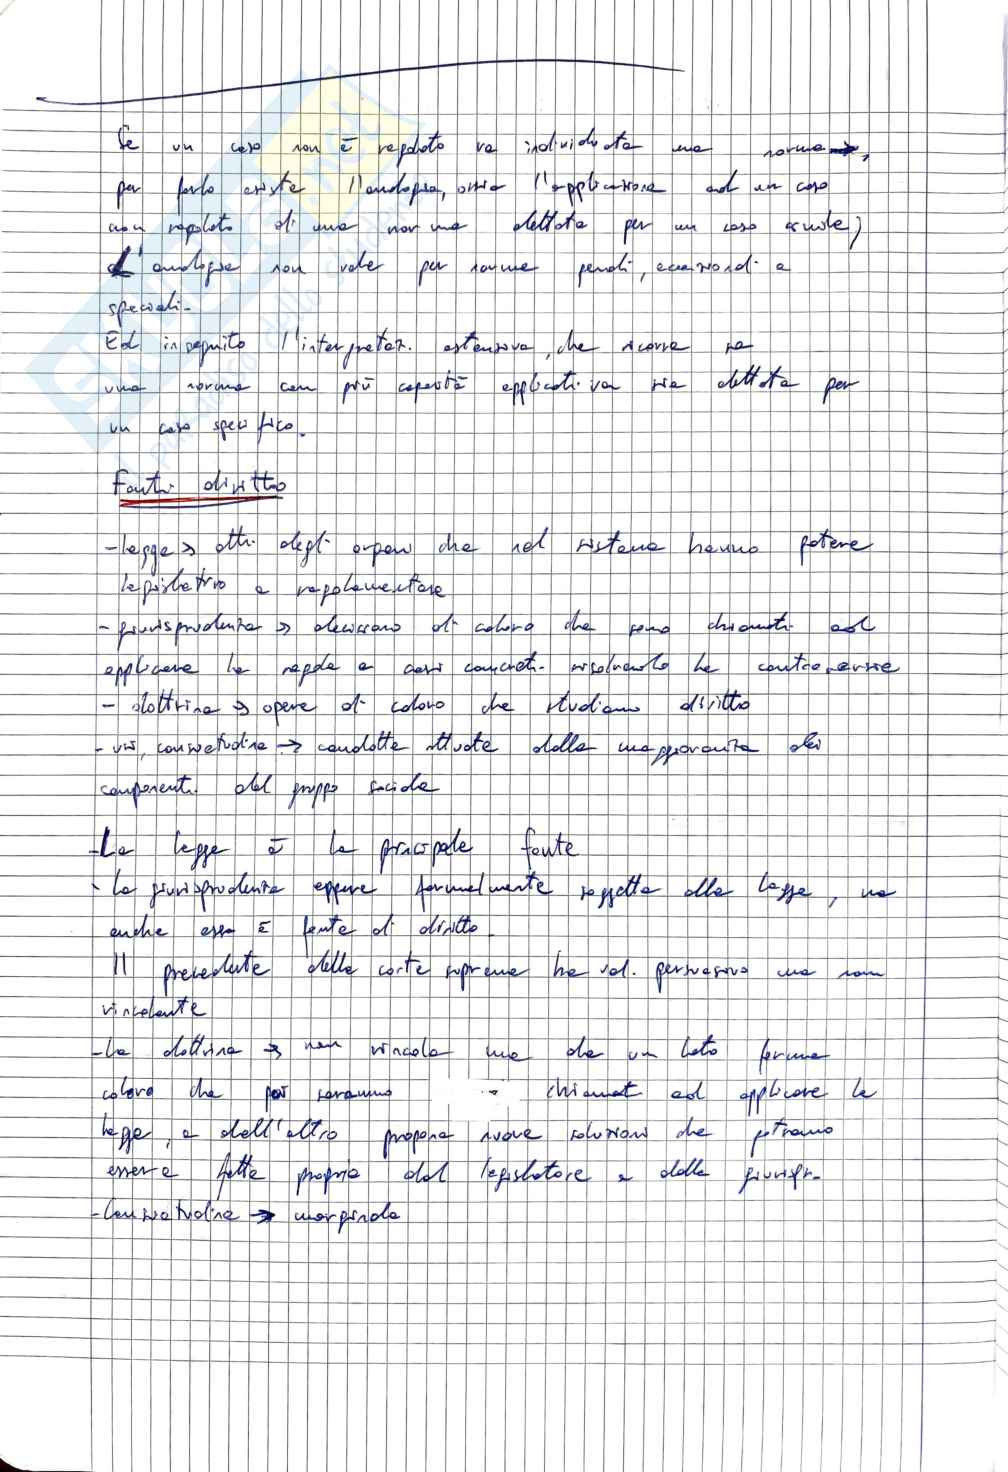 Se un caso non è regolato va individuata una norma,
per farlo esiste l'analogia, ossia l'applicazione ad un caso
non regolato di una norma dettata per un caso simile;
L'analogia non vale per norme penali, eccezionali e
speciali.
Ed in seguito l'interpretaz. estensiva, che ricorre se
una norma con più capacità applicativa sia dettata per
un caso specifico.
Fonti diritto
- legge → atti degli organi che nel sistema hanno potere
legislativo e regolamentare
- giurisprudenza → decisioni di coloro che sono chiamati ad
applicare le regole a casi concreti risolvendo le controversie
- dottrina → opere di coloro che studiano diritto
- usi, consuetudine → condotte attuate dalla maggioranza dei
componenti del gruppo sociale
- La legge è la principale fonte
- La giurisprudenza appare formalmente soggetta alla legge, ma
anche essa è fonte di diritto.
Il precedente della corte suprema ha val. persuasivo ma non
vincolante
- La dottrina → non vincola ma da un lato forma
coloro che poi saranno chiamat ad applicare la
legge, e dall'altro propone nuove soluzioni che potranno
essere fatte proprie dal legislatore e dalla giurispr.
- Consuetudine → marginale